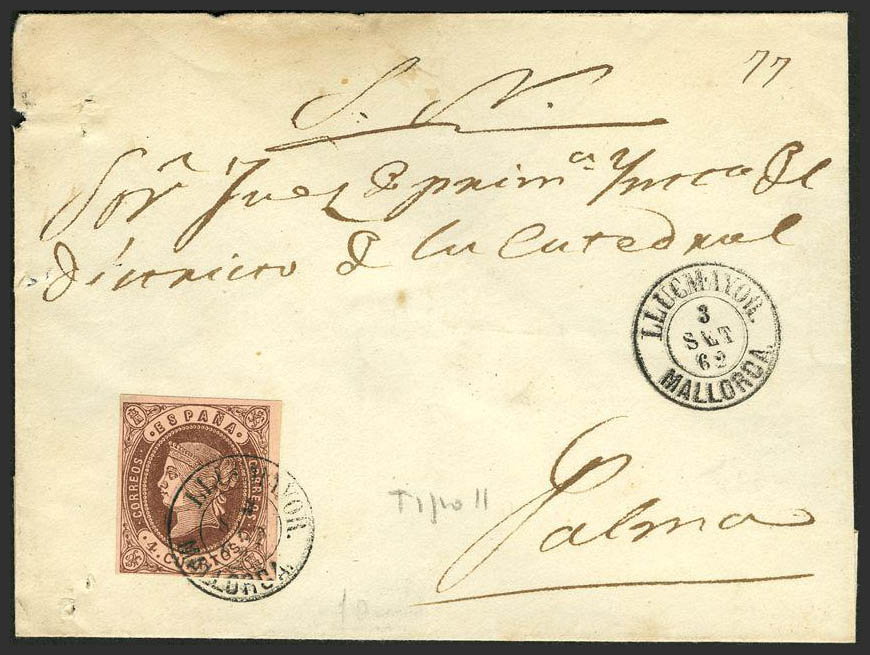 77
S. N.
Sor.n Juez de prim.a Ynsca del
districto de la Catedral
LLUCMAYOR.
3
SET
62
MALLORCA.
ESPAÑA
CORREOS
CORREOS
4. CUARTOS
LLUCMAYOR.
MALLORCA.
Tipo II
Palma
10